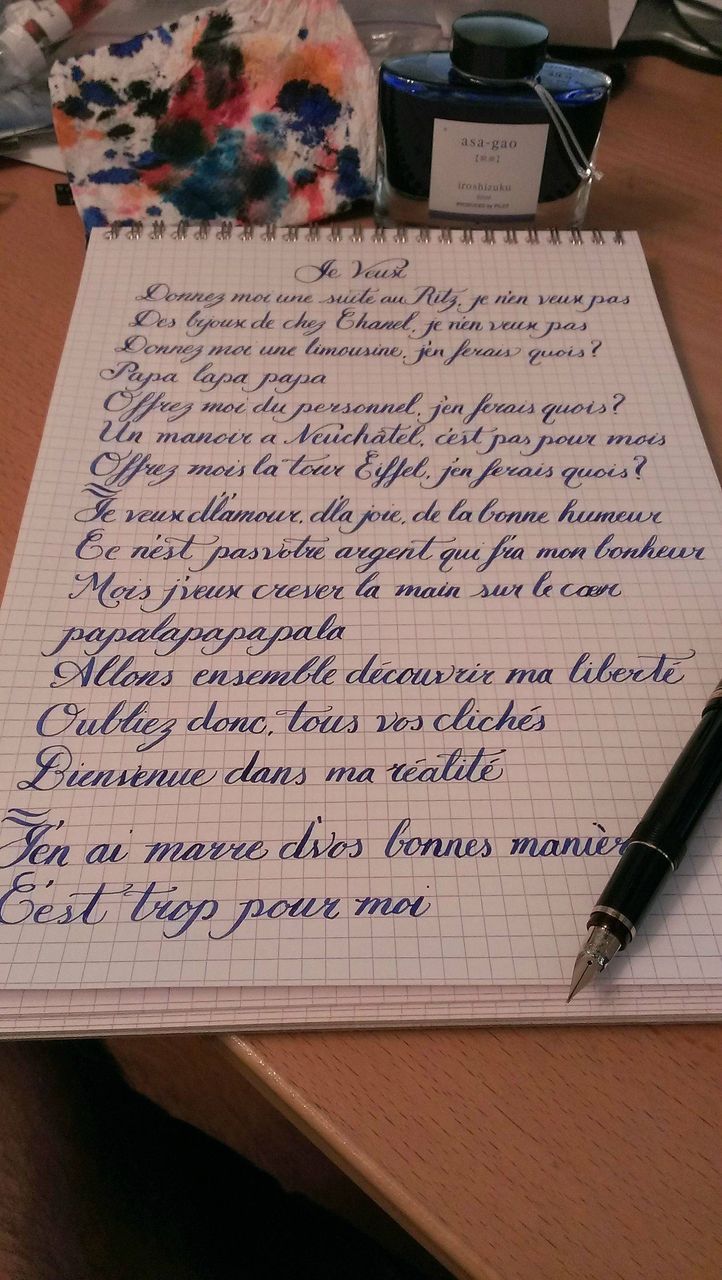 asa-gao
iroshizuku
PRODUCED by PILOT
Je Veux
Donnez moi une suite au Ritz, je n'en veux pas
Des bijoux de chez Chanel, je n'en veux pas
Donnez moi une limousine, j'en ferais quois?
Papa lapa papa
Offrez moi du personnel, j'en ferais quois?
Un manoir a Neuchatel, c'est pas pour mois
Offrez mois la tour Eiffel, j'en ferais quois?
Je veux d'l'amour, d'la joie, de la bonne humeur
Ce n'est pas votre argent qui f'ra mon bonheur
Mois j'veux crever la main sur le cœur
papalapapapala
Allons ensemble découvrir ma liberté
Oubliez donc, tous vos clichés
Bienvenue dans ma réalité
J'en ai marre d'vos bonnes manièr
C'est trop pour moi